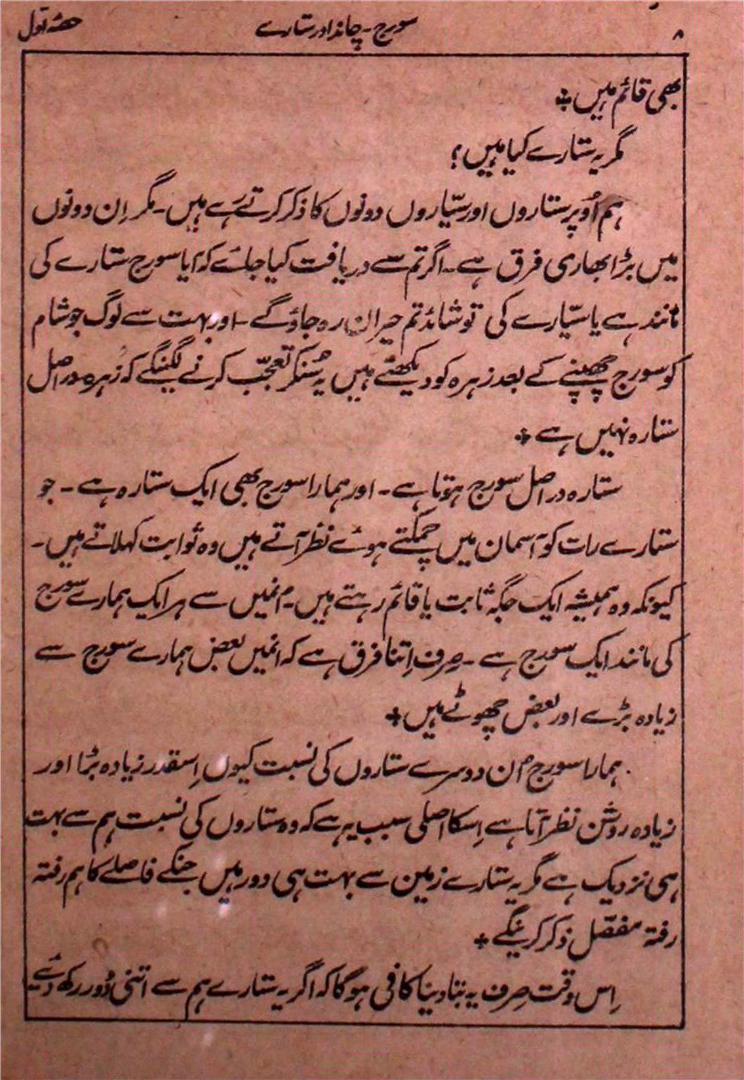 ۸ سورج - چاند اور ستارے حصّہ اوّل
بھی قائم ہیں +
مگر یہ ستارے کیا ہیں؟
ہم اُوپر ستاروں اور سیّاروں دونوں کا ذکر کرتے رہے ہیں - مگر اِن دونوں
میں بڑا بھاری فرق ہے - اگر تم سے دریافت کیا جائے کہ آیا سورج ستارے کی
مانند ہے یا سیّارے کی تو شائد تم حیران رہ جاؤ گے - اور بہت سے لوگ جو شام
کو سورج چھپنے کے بعد زہرہ کو دیکھتے ہیں یہ سُنکر تعجّب کرنے لگینگے کہ زُہرہ دراصل
ستارہ نہیں ہے +
ستارہ دراصل سورج ہوتا ہے - اور ہمارا سورج بھی ایک ستارہ ہے - جو
ستارے رات کو آسمان میں چمکتے ہوئے نظر آتے ہیں وہ ثوابت کہلاتے ہیں -
کیونکہ وہ ہمیشہ ایک جگہ ثابت یا قائم رہتے ہیں - اُنمیں سے ہر ایک ہمارے سورج
کی مانند ایک سورج ہے - صِرف اِتنا فرق ہے کہ انمیں بعض ہمارے سورج سے
زیادہ بڑے اور بعض چھوٹے ہیں +
ہمارا سورج اُن دوسرے ستاروں کی نسبت کیوں اِسقدر زیادہ بڑا اور
زیادہ روشن نظر آتا ہے اِسکا اصلی سبب یہ ہے کہ وہ ستاروں کی نسبت ہم سے بہت
ہی نزدیک ہے مگر یہ ستارے زمین سے بہت ہی دور ہیں جنکے فاصلے کا ہم رفتہ
رفتہ مفصّل ذکر کرینگے +
اِس وقت صِرف یہ بتا دینا کافی ہوگا کہ اگر یہ ستارے ہم سے اتنی دُور رکھ دئے